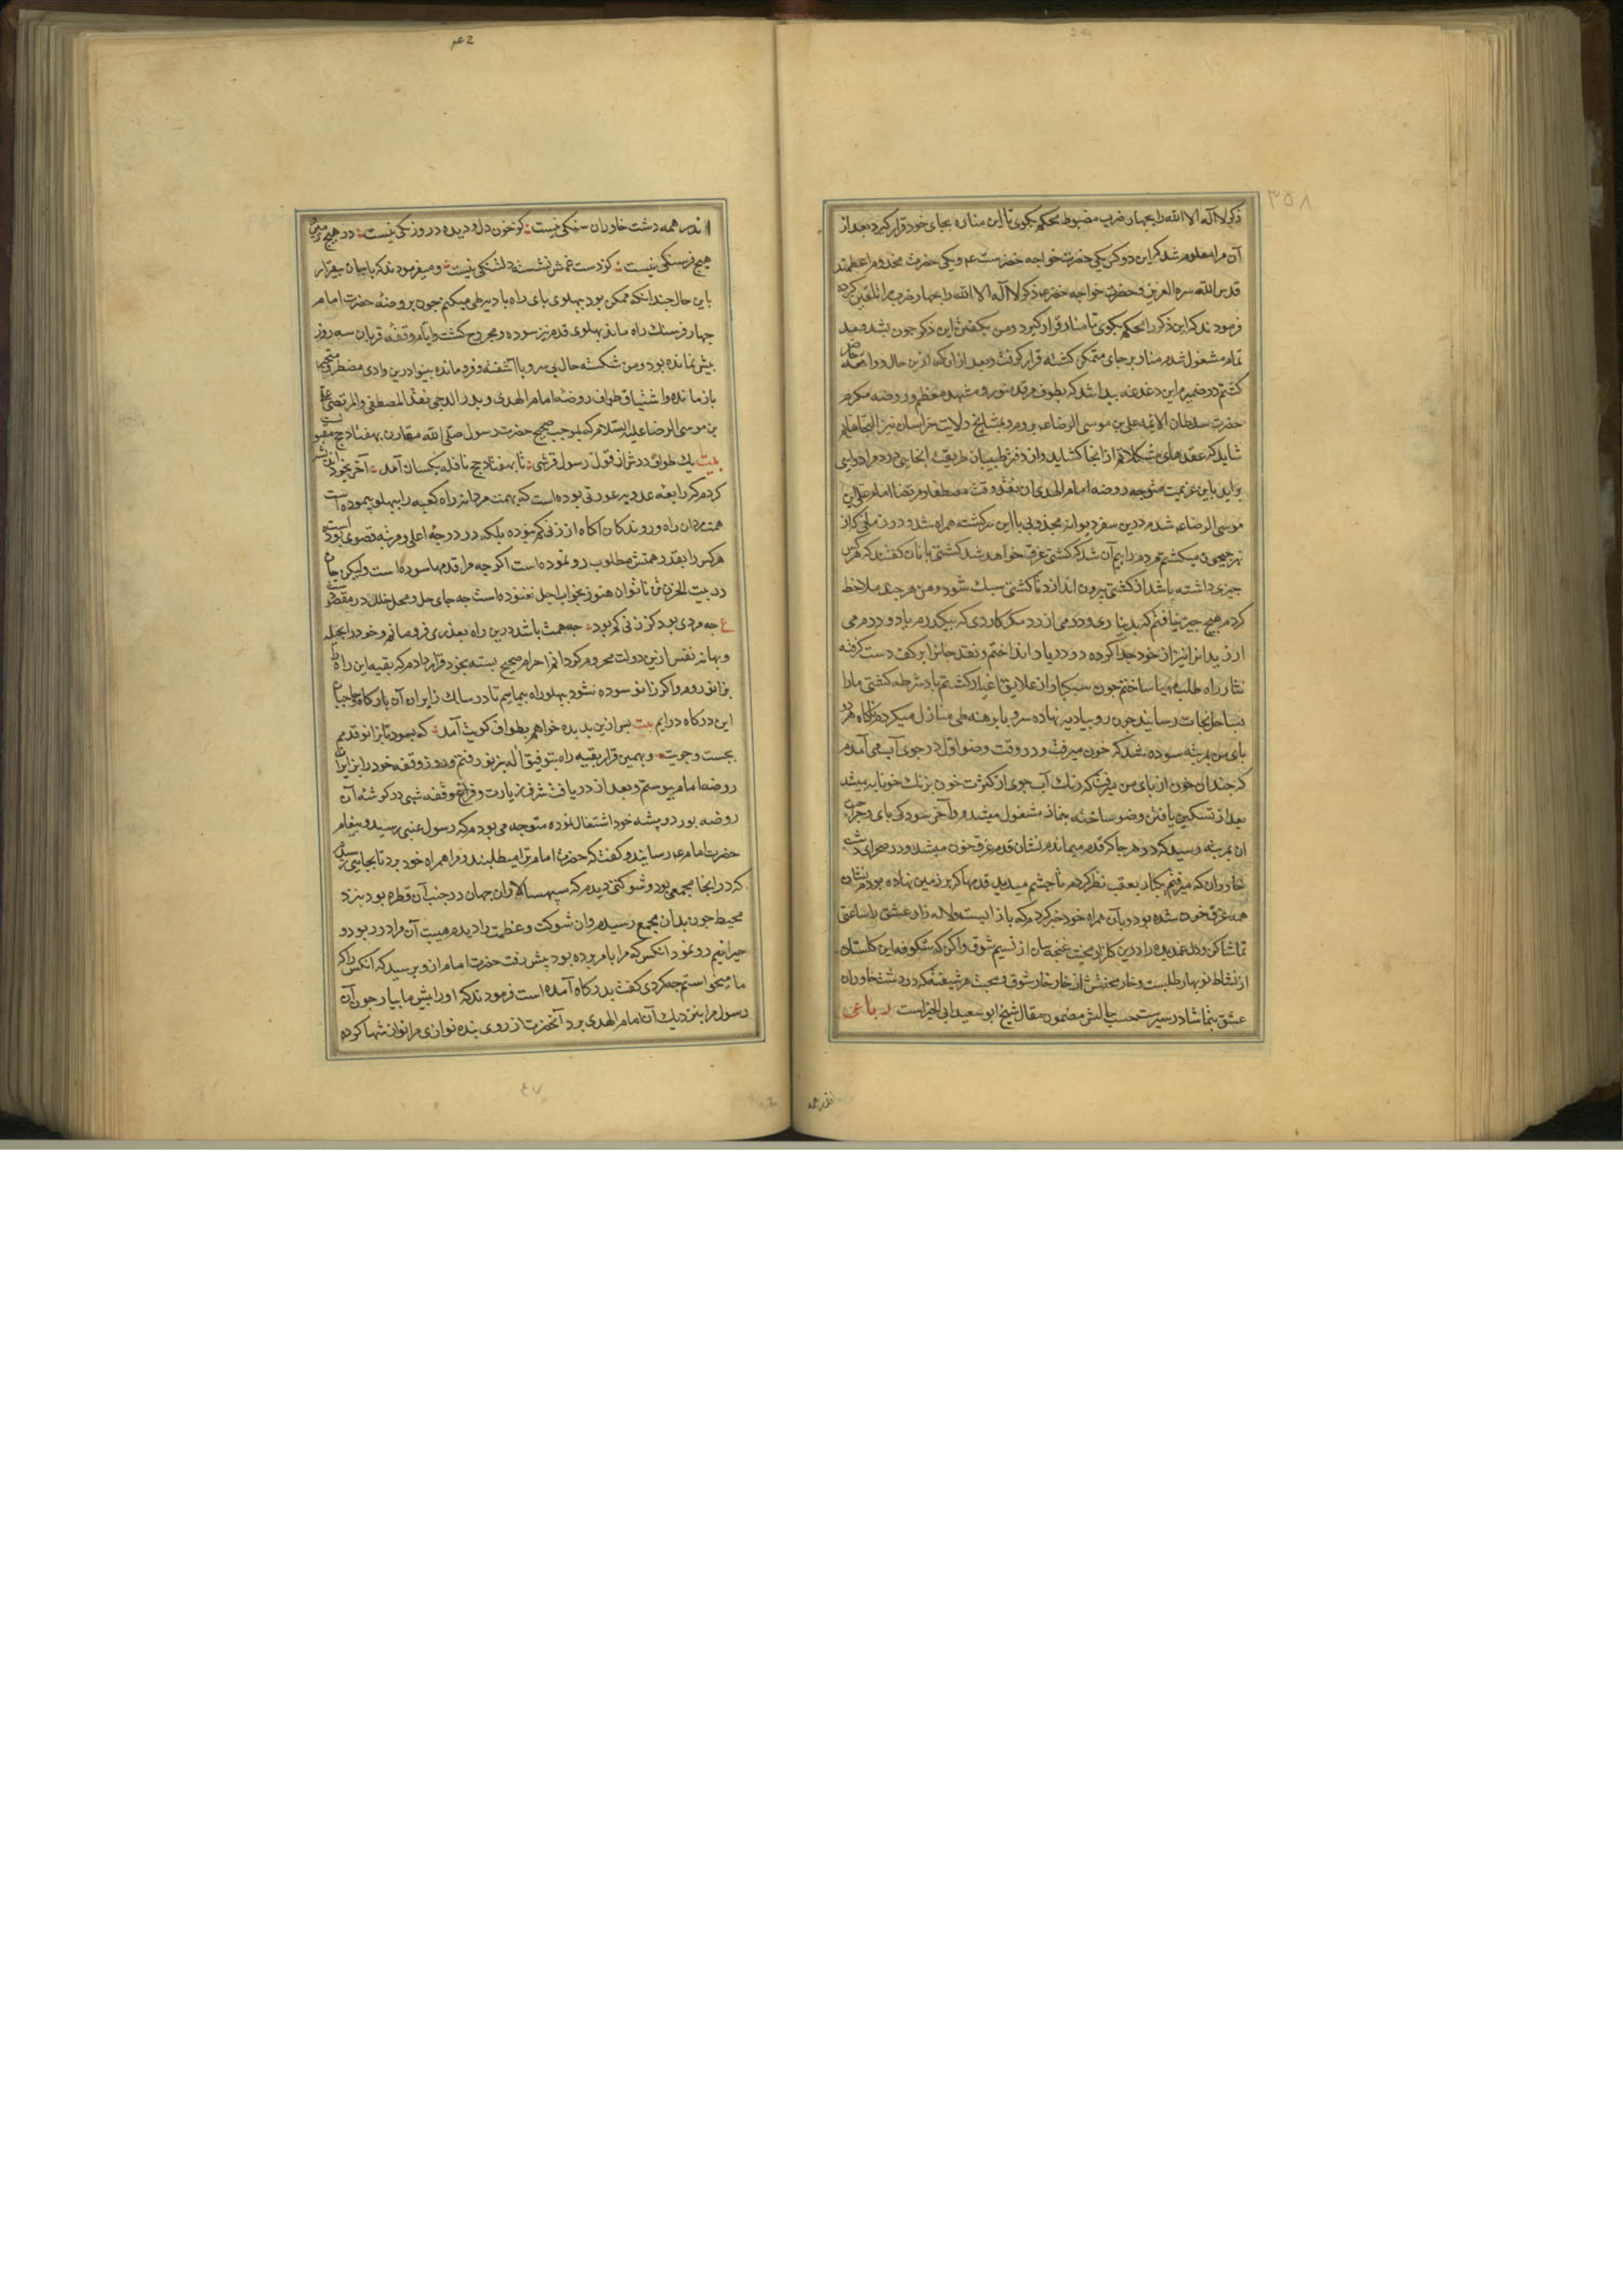 ٣٥٨
ذکر لا اله الا الله را بچهار ضرب مضبوط محکم بکوی تا این مناره بجای خود قرار کیرد بعد از
آن مرا معلوم شد که این دو کس یکی حضرت خواجه خضرست عم و یکی حضرت مخدوم اعظمند
قدس الله سره العزیز و حضرت خواجه خضر عم ذکر لا اله الا الله را بچهار ضرب مرا تلقین کرده
فرمودند که این ذکر را محکم بکوی تا منار قرار کیرد و من بکفتن این ذکر چون بشد و مد
تمام مشغول شدم منار بر جای متمکن کشته قرار کرفت و بعد از ان که ازین حال و واقعه حاضر
کشتم در ضمیرم این دغدغه پیدا شد که بطوف مرقد منور و مشهد معظم و روضه مکرم
حضرت سلطان الائمه علی بن موسی الرضا عم بروم و بمشایخ ولایت خراسان نیز التجا نمایم
شاید که عقدهای مشکلاتم از انجا کشاید و از دفتر طبیبان طریقت انجایی دردم را دوایی
براید باین عزیمت متوجه روضه امام الهدی ان نقد وقت مصطفا و مرتضا امام علی ابن
موسی الرضا عم شدم درین سفر دیوانه مجذوبی با این سرکشته همراه شد و در زمانی که از
نهر جیحون میکشتیم مردم را بیم آن شد که کشتی غرق خواهد شد کشتی بانان کفتند که هر کس
چیزی داشته باشد از کشتی بیرون اندازد تا کشتی سبک شود و من هر چند ملاحظه
کردم هیچ چیز نیافتم که بدیناری و درمی ارزد مکر کاردی که بیکدرم یا دو درم می
ارزید انرا نیز از خود جدا کرده در دریا انداختم و نقد جانرا بر کف دست کرفته
نثار راه طلب مهیا ساختم چون سبکبار از علایق اغیار کشتم باد شرطه کشتی ما را
بساحل نجات رسانید چون رو ببادیه نهاده سر و پا برهنه طی منازل میکردم انکاه هر دو
پای من بمرتبه سوده شد که خون میرفت و در وقت وضو اول در جوی آب می آمدم
که چندان خون از پای من میرفت که رنک آب جوی از کثرت خون برنک خونابه میشد
بعد از تسکین یافتن وضو ساخته بنماز مشغول میشدم و آخر سودکی پای و جراحت
ان بمرتبه رسید که در هر جا که قدم میماندم نشان قدم غرق خون میشد و در صحرای دشت
خاوران که میرفتم یکبار بعقب نظر کردم تا چشم میدید قدمها که بر زمین نهاده بودم نشان
همه غرق خون شده بود و بآن همراه خود خبر کردم که باز ایست و لاله زار عشق را ساعتی
تماشا کن و دل غمدیده را درین کلزار محبت غنچه سان از نسیم شوق واکن که شکوفه این کلستان
از نشاط نوبهار طلبست و خار محنتش از خار خار شوق و محبت هر شیفته که در دشت خاوران
عشق بتماشا در سیرست حسب حالش مضمون مقال شیخ ابو سعید ابی الخیر است رباعی
اندر همه
اندر همه دشت خاوران سنکی نیست کز خون دل و دیده درو رنکی نیست در هیچ زمین
هیچ فرسنکی نیست کز دست غمش نشسته دلتنکی نیست و میفرمودند که با جان بیقرار
باین حال چندانکه ممکن بود بپهلوی پای راه بادیه طی میکنم چون بروضه حضرت امام
چهار فرسنک راه ماند پهلوی قدم نیز سوده و مجروح کشت و ایام وقفه قربان سه روز
بیش نمانده بود و من شکسته حال بی سر و پا آشفته و فرو مانده بینوا درین وادی مضطر و متحیر
باز مانده و اشتیاق طواف روضه امام الهدی و بدر الدجی نقد المصطفی و المرتضی علی
بن موسی الرضا علیه السلام که بموجب صحیح حضرت رسول صلی الله مقارن بهفتاد حج مقبولست
بیت یک طوف درش از قول رسول قرشی تا بهفتاد حج نافله یکسان آمد آخر بخود اندیشه
کردم که رابعه عدویه عورتی بوده است که بهمت مردانه راه کعبه را بپهلو پیموده است
همت مردان راه و روندکان آکاه از زنی کم نبوده بلکه در درجه اعلی و مرتبه قصوی بوده است
هر کس را بقدر همتش مطلوب رو نموده است اکر چه مرا قدمها سوده است ولیکن جان
در بیت الحزن تن ناتوان هنوز بخواب اجل نغنوده است چه جای حل و محل خلل در مقصودست
ع چه مردی بود کز زنی کم بود چه همت باشد درین راه بعذری فرو مانم و خود را بحیله
و بهانه نفس ازین دولت محروم کردانم احرام صحیح بسته بخود قرار دادم که بقیه این راه را
بزانو روم و اکر زانو سوده شود بپهلو راه پیمایم تا در سالک زایران آن بارکاه و حاجیان
این درکاه درایم بیت پس ازین بدیده خواهم بطواف کویت آمد که بسود تا بزانو قدمم
بجست و جویت و بهمین قرار بقیه راه بتوفیق اله بزانو رفتم و روز وقفه خود را بزایران
روضه امام پیوستم و بعد از دریافت شرف زیارت و فراغ وقفه شبی در کوشه آن
روضه بورد و پیشه خود اشتغال نموده متوجه می بودم که رسول غیبی رسید و پیغام
حضرت امام عم رسانید و کفت که حضرت امام ترا میطلبند و مرا همراه خود برد تا بجایی رسیدم
که در انجا مجمعی بود و شوکتی دیدم که سپهسالاران جهان در جنب آن قطره بود بنزد
محیط چون بدان مجمع رسیدم و ان شوکت و عظمت را دیدم هیبت آن مرا در ربود و
حیرانیم رو نمود انکس که مرا بامر برده بود پیش رفت حضرت امام ازو پرسید که آنکس را که
ما میخواستیم چه کردی کفت بدرکاه آمده است فرمودند که او را پیش ما بیار چون آن
رسول مرا بنزدیک آن امام الهدی برد آنحضرت از روی بنده نوازی مرا نوازشها کرده